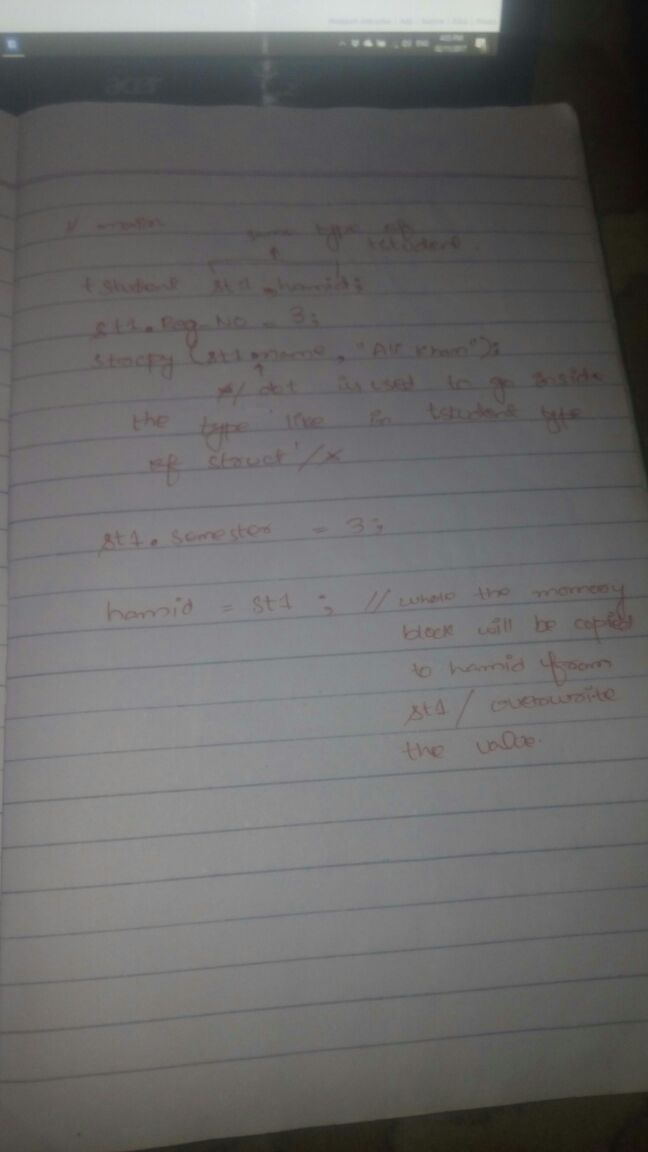 // main
same type of
tstudent.
tstudent st1, hamid;
st1.Reg-No = 3;
strcpy (st1.name, "Ali Khan");
*/ dot is used to go inside
the type like in tstudent type
of struct /*
st1.semester = 3;
hamid = st1 ; // whole the memory
block will be copied
to hamid from
st1 / overwrite
the value.
acer